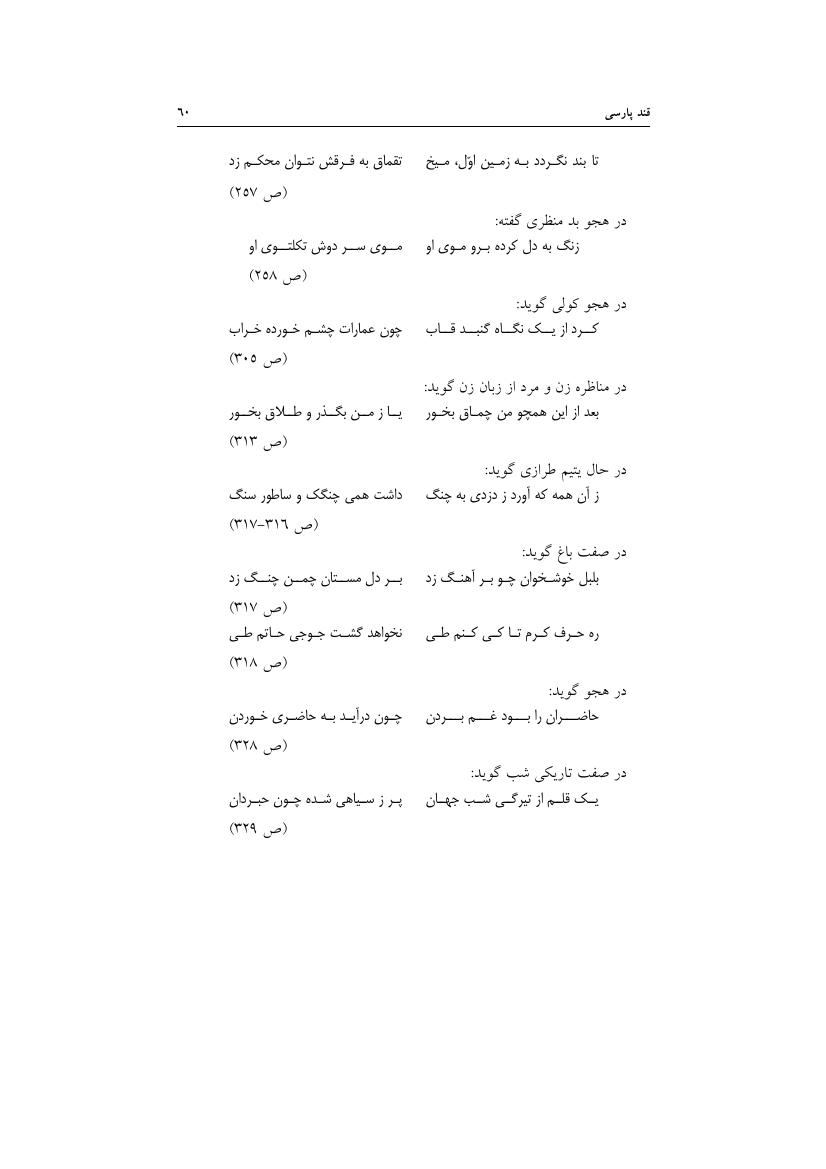 قند پارسی ٦٠
تا بند نگردد به زمین اوّل، میخ تقماق به فرقش نتوان محکم زد
(ص ٢٥٧)
در هجو بد منظری گفته:
زنگ به دل کرده برو موی او موی سر دوش تکلتوی او
(ص ٢٥٨)
در هجو کولی گوید:
کرد از یک نگاه گنبد قاب چون عمارات چشم خورده خراب
(ص ٣٠٥)
در مناظره زن و مرد از زبان زن گوید:
بعد از این همچو من چماق بخور یا ز من بگذر و طلاق بخور
(ص ٣١٣)
در حال یتیم طرازی گوید:
ز آن همه که آورد ز دزدی به چنگ داشت همی چنگک و ساطور سنگ
(ص ٣١٦-٣١٧)
در صفت باغ گوید:
بلبل خوشخوان چو بر آهنگ زد بر دل مستان چمن چنگ زد
(ص ٣١٧)
ره حرف کرم تا کی کنم طی نخواهد گشت جوجی حاتم طی
(ص ٣١٨)
در هجو گوید:
حاضران را بود غم بردن چون درآید به حاضری خوردن
(ص ٣٢٨)
در صفت تاریکی شب گوید:
یک قلم از تیرگی شب جهان پر ز سیاهی شده چون حبردان
(ص ٣٢٩)